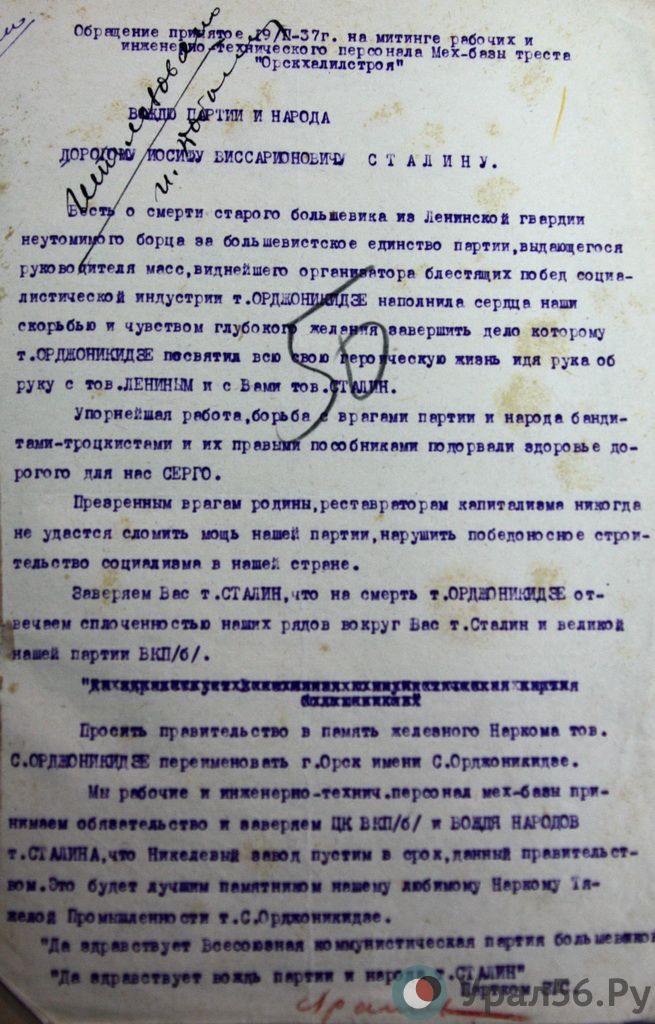 Обращение принятое 19/II-37г. на митинге рабочих и
инженерно-технического персонала Мех-базы треста
"Орскхалилстроя"
ВОЖДЮ ПАРТИИ И НАРОДА
ДОРОГОМУ ИОСИФУ ВИССАРИОНОВИЧУ С Т А Л И Н У.
Весть о смерти старого большевика из Ленинской гвардии
неутомимого борца за большевистское единство партии,выдающегося
руководителя масс,виднейшего организатора блестящих побед социа-
листической индустрии т.ОРДЖОНИКИДЗЕ наполнила сердца наши
скорбью и чувством глубокого желания завершить дело которому
т.ОРДЖОНИКИДЗЕ посвятил всю свою героическую жизнь идя рука об
руку с тов.ЛЕНИНЫМ и с Вами тов.СТАЛИН.
50
Упорнейшая работа,борьба с врагами партии и народа банди-
тами-троцкистами и их правыми пособниками подорвали здоровье до-
рогого для нас СЕРГО.
Презренным врагам родины,реставраторам капитализма никогда
не удастся сломить мощь нашей партии,нарушить победоносное строи-
тельство социализма в нашей стране.
Заверяем Вас т.СТАЛИН,что на смерть т.ОРДЖОНИКИДЗЕ от-
вечаем сплоченностью наших рядов вокруг Вас т.Сталин и великой
нашей партии ВКП/б/.
Просить правительство в память железного Наркома тов.
С.ОРДЖОНИКИДЗЕ переименовать г.Орск имени С.Орджоникидзе.
Мы рабочие и инженерно-технич.персонал мех-базы при-
нимаем обязательство и заверяем ЦК ВКП/б/ и ВОЖДЯ НАРОДОВ
т.СТАЛИНА,что Никелевый завод пустим в срок,данный правительст-
вом.Это будет лучшим памятником нашему любимому Наркому Тя-
желой Промышленности т.С.Орджоникидзе.
"Да здравствует Всесоюзная коммунистическая партия большевиков
"Да здравствует вождь партии и народа т.СТАЛИН"
Партком
Урал56.Ру